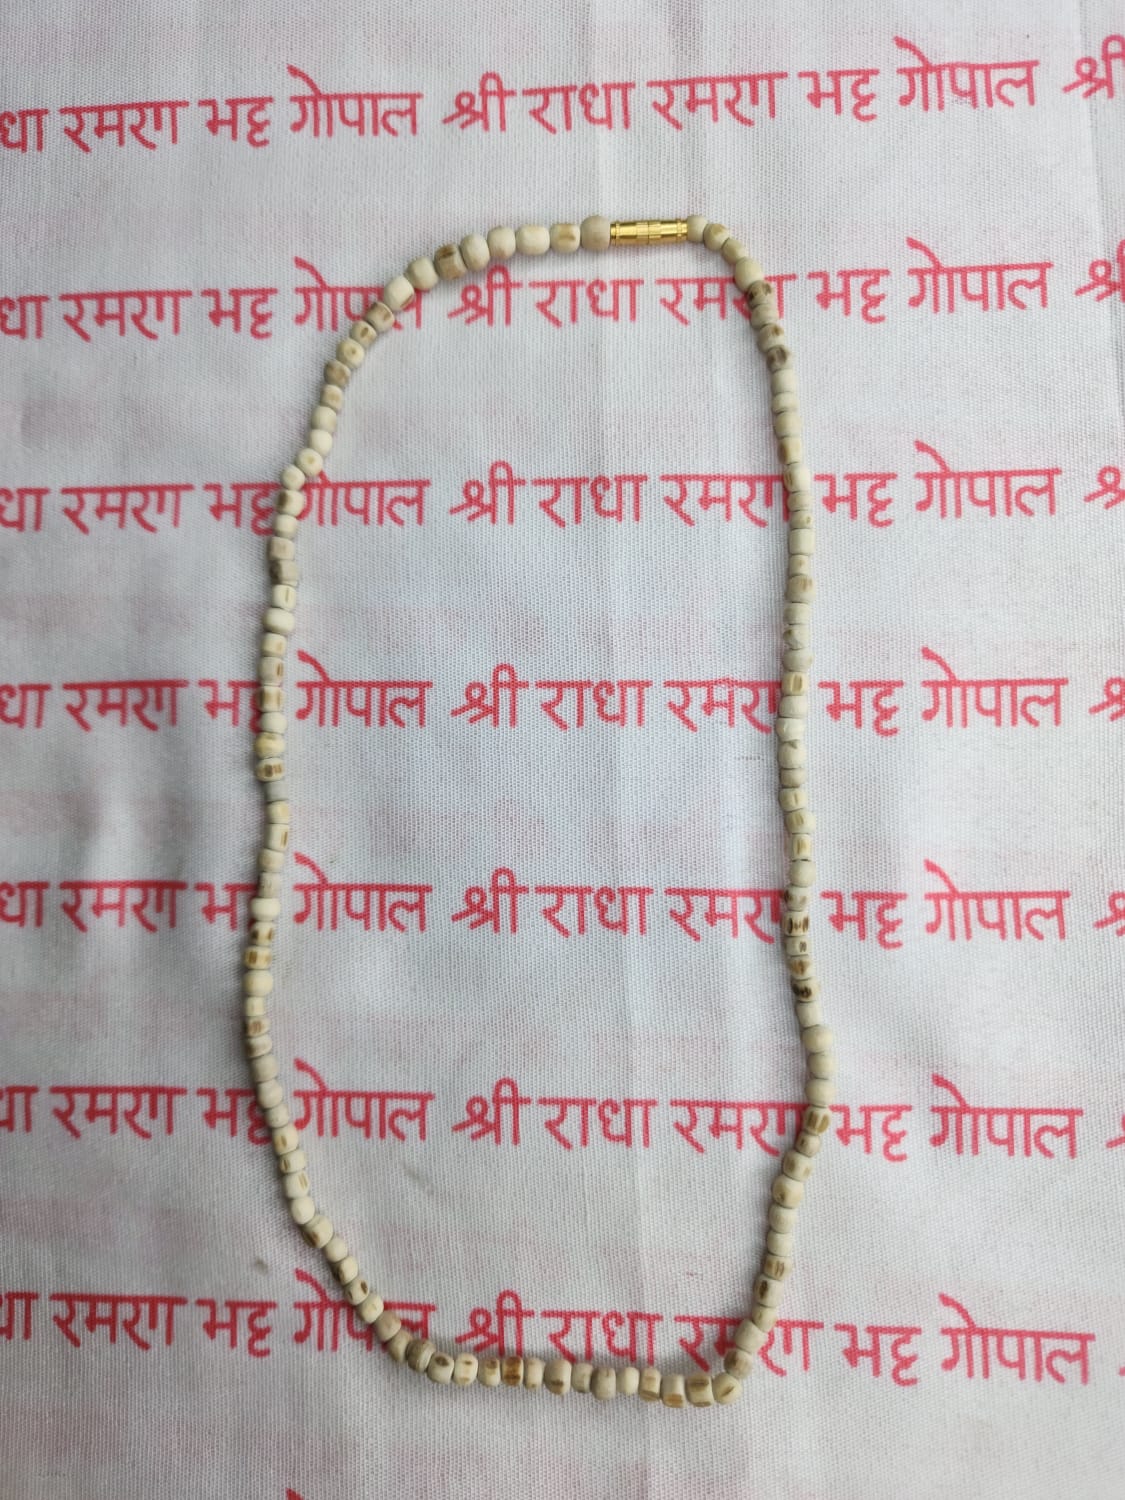 धा रमरण भट्ट गोपाल श्री राधा रमरण भट्ट गोपाल श्री
धा रमरण भट्ट गोपाल श्री राधा रमरण भट्ट गोपाल श्री
धा रमरण भट्ट गोपाल श्री राधा रमरण भट्ट गोपाल श्री
धा रमरण भट्ट गोपाल श्री राधा रमरण भट्ट गोपाल श्री
धा रमरण भट्ट गोपाल श्री राधा रमरण भट्ट गोपाल श्री
धा रमरण भट्ट गोपाल श्री राधा रमरण भट्ट गोपाल
धा रमरण भट्ट गोपाल श्री राधा रमरण भट्ट गोपाल